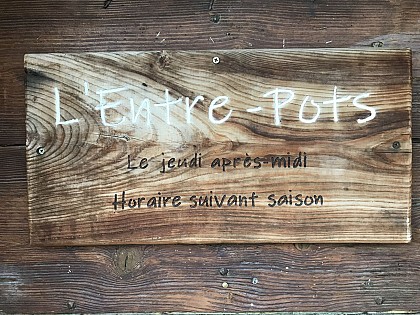 L'Entre-Pots
Le jeudi après-midi
Horaire suivant saison